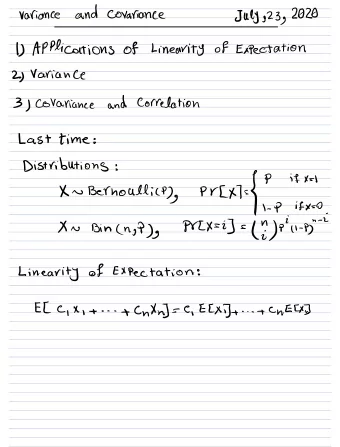 Variance and Covariance July,23, 2020
1) Applications of Linearity of Expectation
2) Variance
3) Covariance and Correlation
Last time:
Distributions:
X ~ Bernoulli(P), Pr[X]= { P if x=1
1-P if x=0
X ~ Bin(n,P), Pr[X=i] = (n i) P^i (1-P)^{n-i}
Linearity of Expectation:
E[ C₁X₁ + ... + CₙXₙ] = C₁ E[X₁]+ ... + Cₙ E[Xₙ]